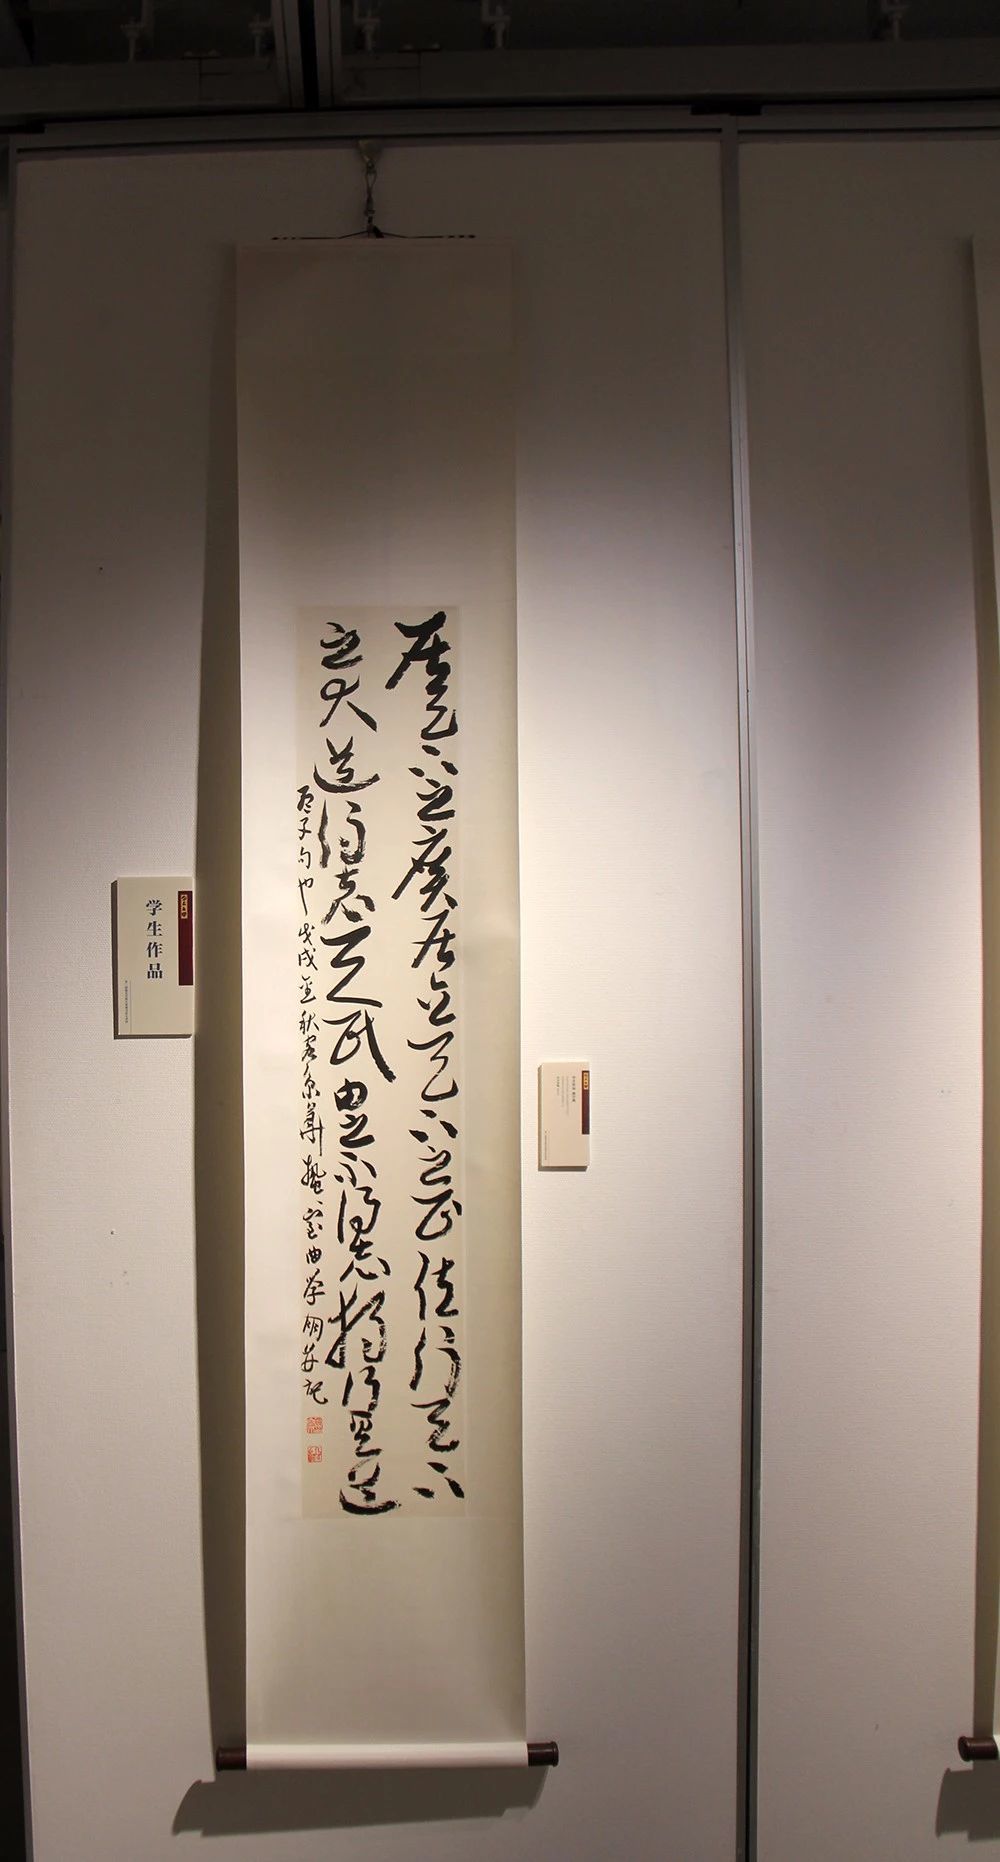 居天下之廣居立天下之正位行天下
之大道得志与民由之不得志獨行其道
孟子句也戊戌秋客京華室曲学朋并记
学生作品